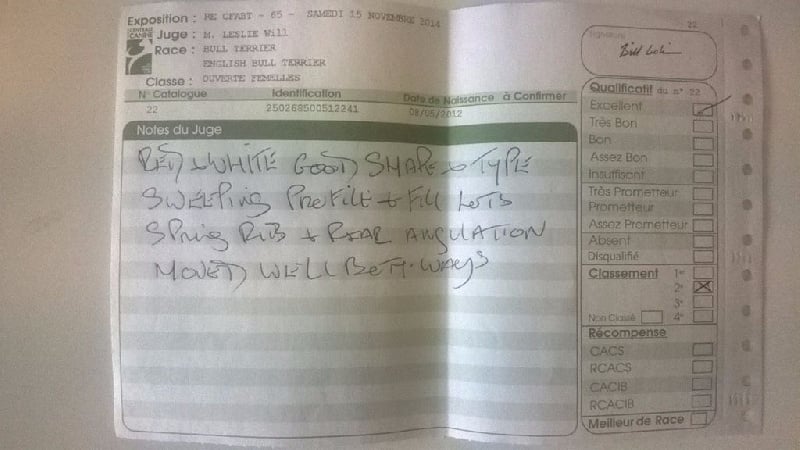 22
Exposition : RE CFABT - 65 - SAMEDI 15 NOVEMBRE 2014
CENTRALE CANINE
Juge : M. LESLIE Will
Race : BULL TERRIER
ENGLISH BULL TERRIER
Classe : OUVERTE FEMELLES
N° Catalogue Identification Date de Naissance à Confirmer
22 250268500512241 08/05/2012
Notes du Juge
RED & WHITE GOOD SHAPE & TYPE
SWEEPING PROFILE + FILL LOTS
SPRING RIB + REAR ANGULATION
MOVED WELL BOTH WAYS
Signature
Qualificatif du n° 22
Excellent
Très Bon
Bon
Assez Bon
Insuffisant
Très Prometteur
Prometteur
Assez Prometteur
Absent
Disqualifié
Classement 1er
2e
3e
Non Classé 4e
Récompense
CACS
RCACS
CACIB
RCACIB
Meilleur de Race